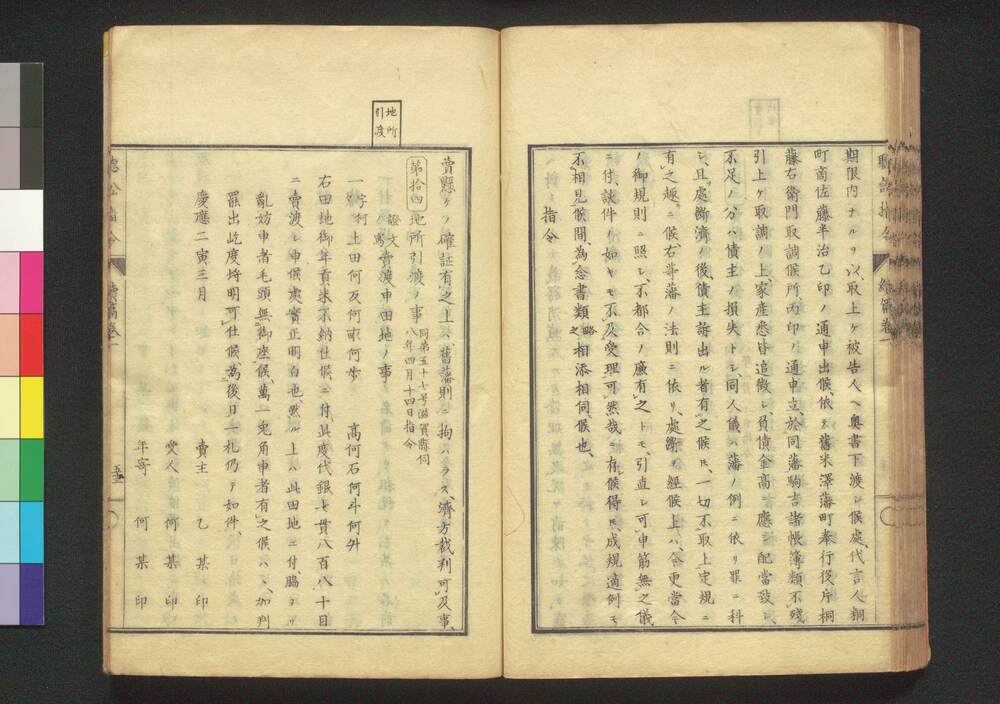 期限内ナルヲ以、取上ケ被告人ヘ奥書下渡シ候處、代言人桐
町商佐藤半治乙印ノ通申出候、依テ舊米澤藩町奉行役片桐
藤右衛門取調候所丙印ノ通申立、於同藩駒吉諸帳簿類、不殘
引上ケ取調ノ上、家産悉皆追徴シ、負債金高ニ應シ配當致シ、
不足ノ分ハ債主ノ損失トシ、同人儀ハ藩ノ例ニ依リ罪ニ科
シ、且處斷濟ノ後、債主訴出ル者有之候氏、一切不取上定規ニ
有之趣ニ候、右等藩ノ法則ニ依リ、處斷ヲ經候上ハ、今更當今
ノ御規則ニ照シ、不都合ノ廉有之トモ、引直シ可申筋無之儀
ニ付、該件ノ如キモ不及受理可然哉ニ有候得氏、成規適例モ
不相見候間、為念書類略之相添相伺候也、
指令
賣懸ケノ確証有之上ハ、舊藩則ニ拘ハラス、濟方裁判可及事、
地所引渡
第拾四 地所引渡ノ事 同第五十七号滋賀縣伺
八年四月十四日指令
證文ノ寫 賣渡申田地ノ事
一字何 上田何反何畝何歩 高何石何斗何升
右田地御年貢米不納仕候ニ付、此度代銀七貫八百八十目
ニ賣渡シ申候處實正明白也、然ル上ハ此田地ニ付、脇ヨリ
亂妨申者毛頭無御座候、萬一兎角申者有之候ハヽ、加判
罷出屹度埓明可仕候、為後日一札仍テ如件、
慶應二寅三月
賣主 乙某印
受人 何某印
年寄 何某印